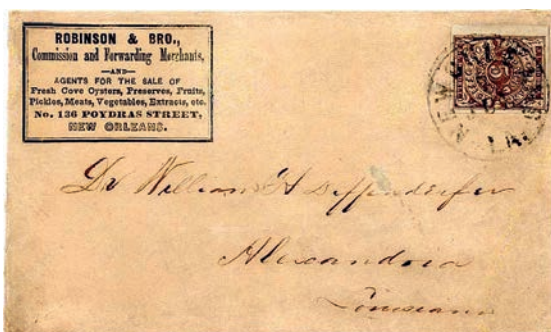 ROBINSON & BRO.,
Commission and Forwarding Merchants,
—AND—
AGENTS FOR THE SALE OF
Fresh Cove Oysters, Preserves, Fruits,
Pickles, Meats, Vegetables, Extracts, etc.
No. 136 POYDRAS STREET,
NEW ORLEANS.
NEW
LA
5
Dr William H Deffenderfer
Alexandria
Louisiana